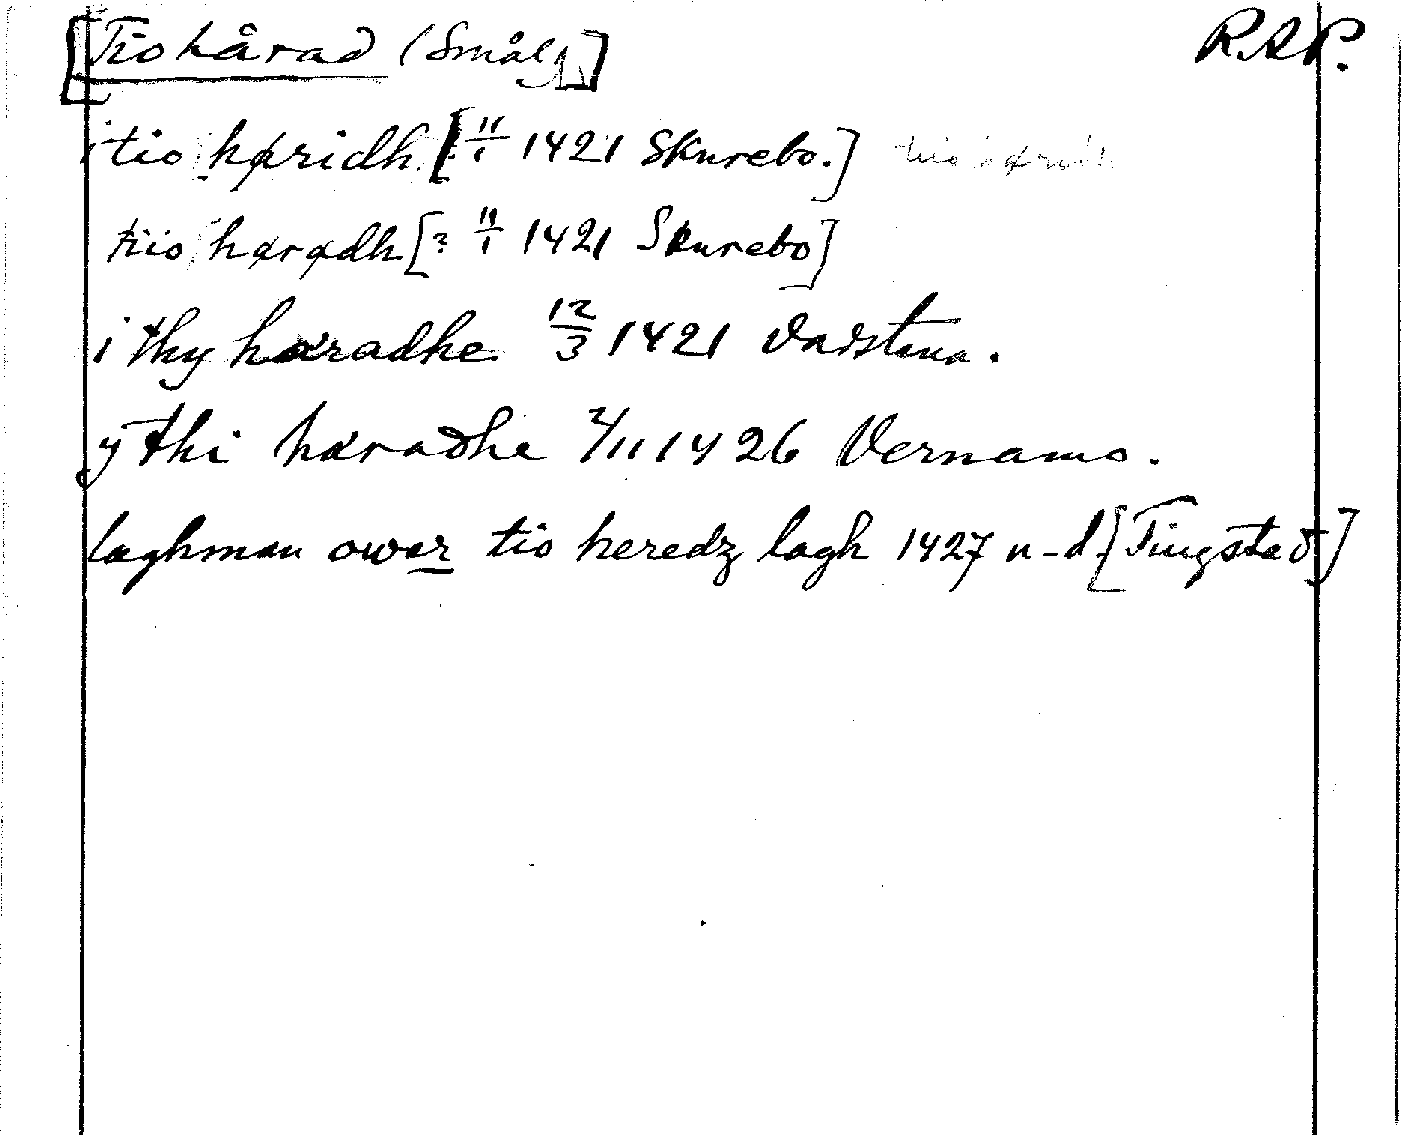 [Tio härad (Smål)] R.A.P.
i tio hæridh [11/1 1421 Skurebo.] tiio hæridh
tiio hærædh [? 11/1 1421 Skurebo]
i thy hæradhe 12/3 1421 Vadstena.
y thi hæradhe 2/11 1426 Vernamo.
laghman owær tio heredz lagh 1427 u-d [Tingstad]